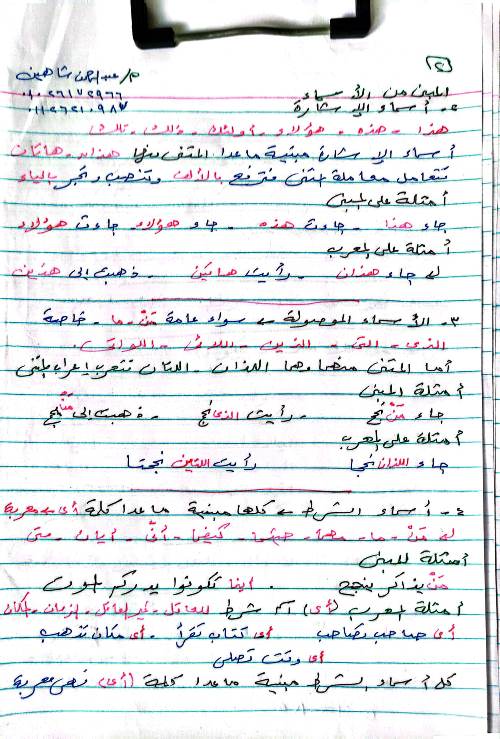 (٢)
م/ عبدالرحمن شاهين
المبنى من الأسماء
٢- أسماء الإشارة
هذا - هذه - هؤلاء - أولئك - ذلك - تلك
أسماء الإشارة مبنية ماعدا المثنى منها هذان - هاتان
تتعامل معاملة المثنى فترفع بالألف وتنصب وتجر بالياء
أمثلة على المبنى
جاء هذا - جاءت هذه - جاء هؤلاء جاءت هؤلاء
أمثلة على المعرب
جاء هذان - رأيت هاتين - ذهبت إلى هذين
٣- الأسماء الموصولة سواء عامة مَنْ - ما - خاصة
الذى - التى - الذين - اللائى - اللواتى.
أما المثنى منهما وهما اللذان - اللتان تتعرب إعراب المثنى
أمثلة المبنى
جاء مَنْ نجح - رأيت الذى نجح - ذهبت إلى مَنْ نجح
أمثلة على المعرب
جاء اللذان نجحا رأيت اللتين نجحتا
٤- أسماء الشرط كلها مبنية ماعدا كلمة أى معربة
مَنْ - ما - مهما - حيثما - كيفما - أنَّى - أيان - متى
أمثلة للمبنى
مَنْ يذاكر ينجح . أينما تكونوا يدرككم الموت
أمثلة المعرب (أى) اسم شرط للعاقل - لغير العاقل - الزمان - المكان
أى صاحب تصاحب أى كتاب تقرأ - أى مكان تذهب
أى وقت تصلى
كل أسماء الشرط مبنية ماعدا كلمة (أى) فهى معربة